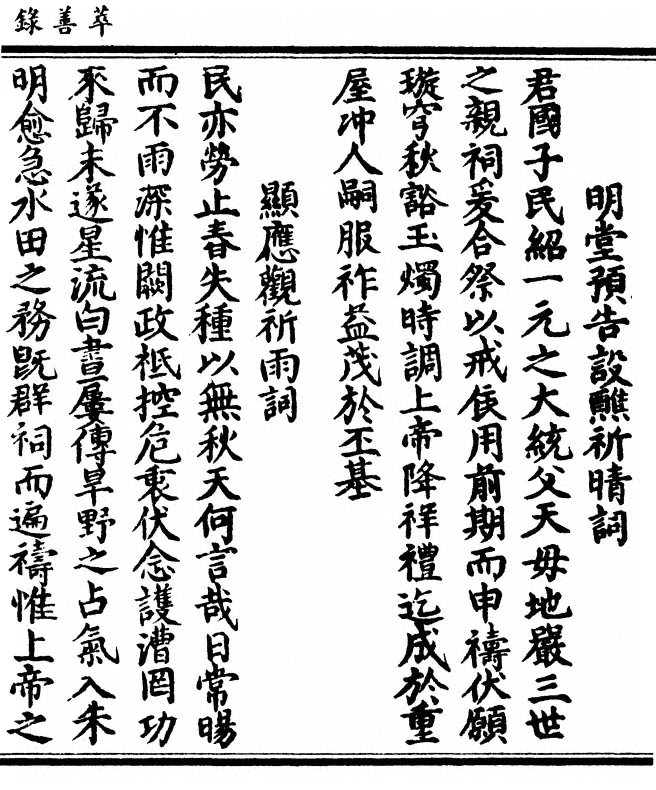 萃善錄
明堂預告設醮祈晴詞
君國子民紹一元之大統父天母地嚴三世
之親祠爰合祭以戒侯用前期而申禱伏願
璇穹秋豁玉燭時調上帝降祥禮迄成於重
屋沖人嗣服祚益茂於丕基
顯應觀祈雨詞
民亦勞止春失種以無秋天何言哉日常暘
而不雨深惟闕政祗控危衷伏念護漕罔功
來歸未遂星流白晝屢傳旱野之占氣入朱
明愈急水田之務旣群祠而遍禱惟上帝之